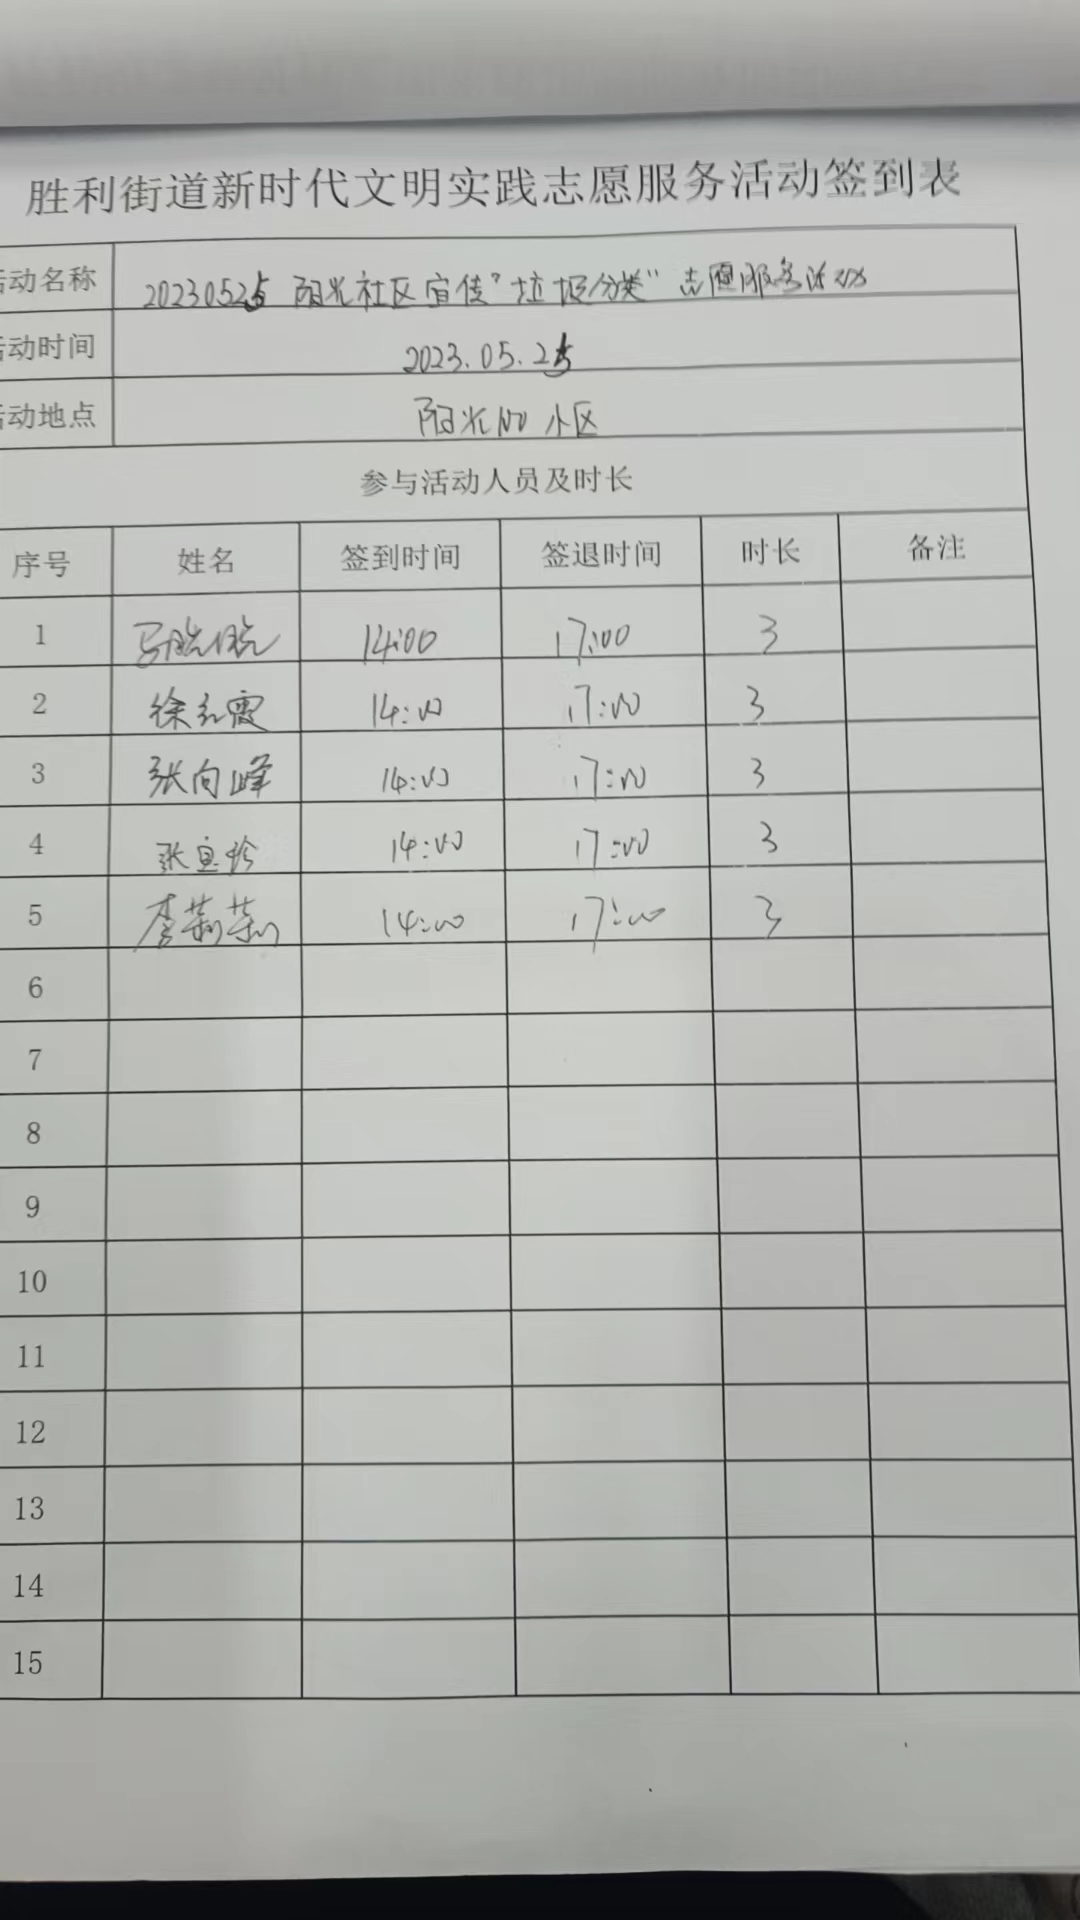 胜利街道新时代文明实践志愿服务活动签到表
活动名称 20230525 阳光社区宣传"垃圾分类"志愿服务活动
活动时间 2023.05.25
活动地点 阳光100小区
参与活动人员及时长
序号 姓名 签到时间 签退时间 时长 备注
1 14:00 17:00 3
2 徐红霞 14:00 17:00 3
3 张向峰 14:00 17:00 3
4 张宜珍 14:00 17:00 3
5 李莉莉 14:00 17:00 3
6
7
8
9
10
11
12
13
14
15